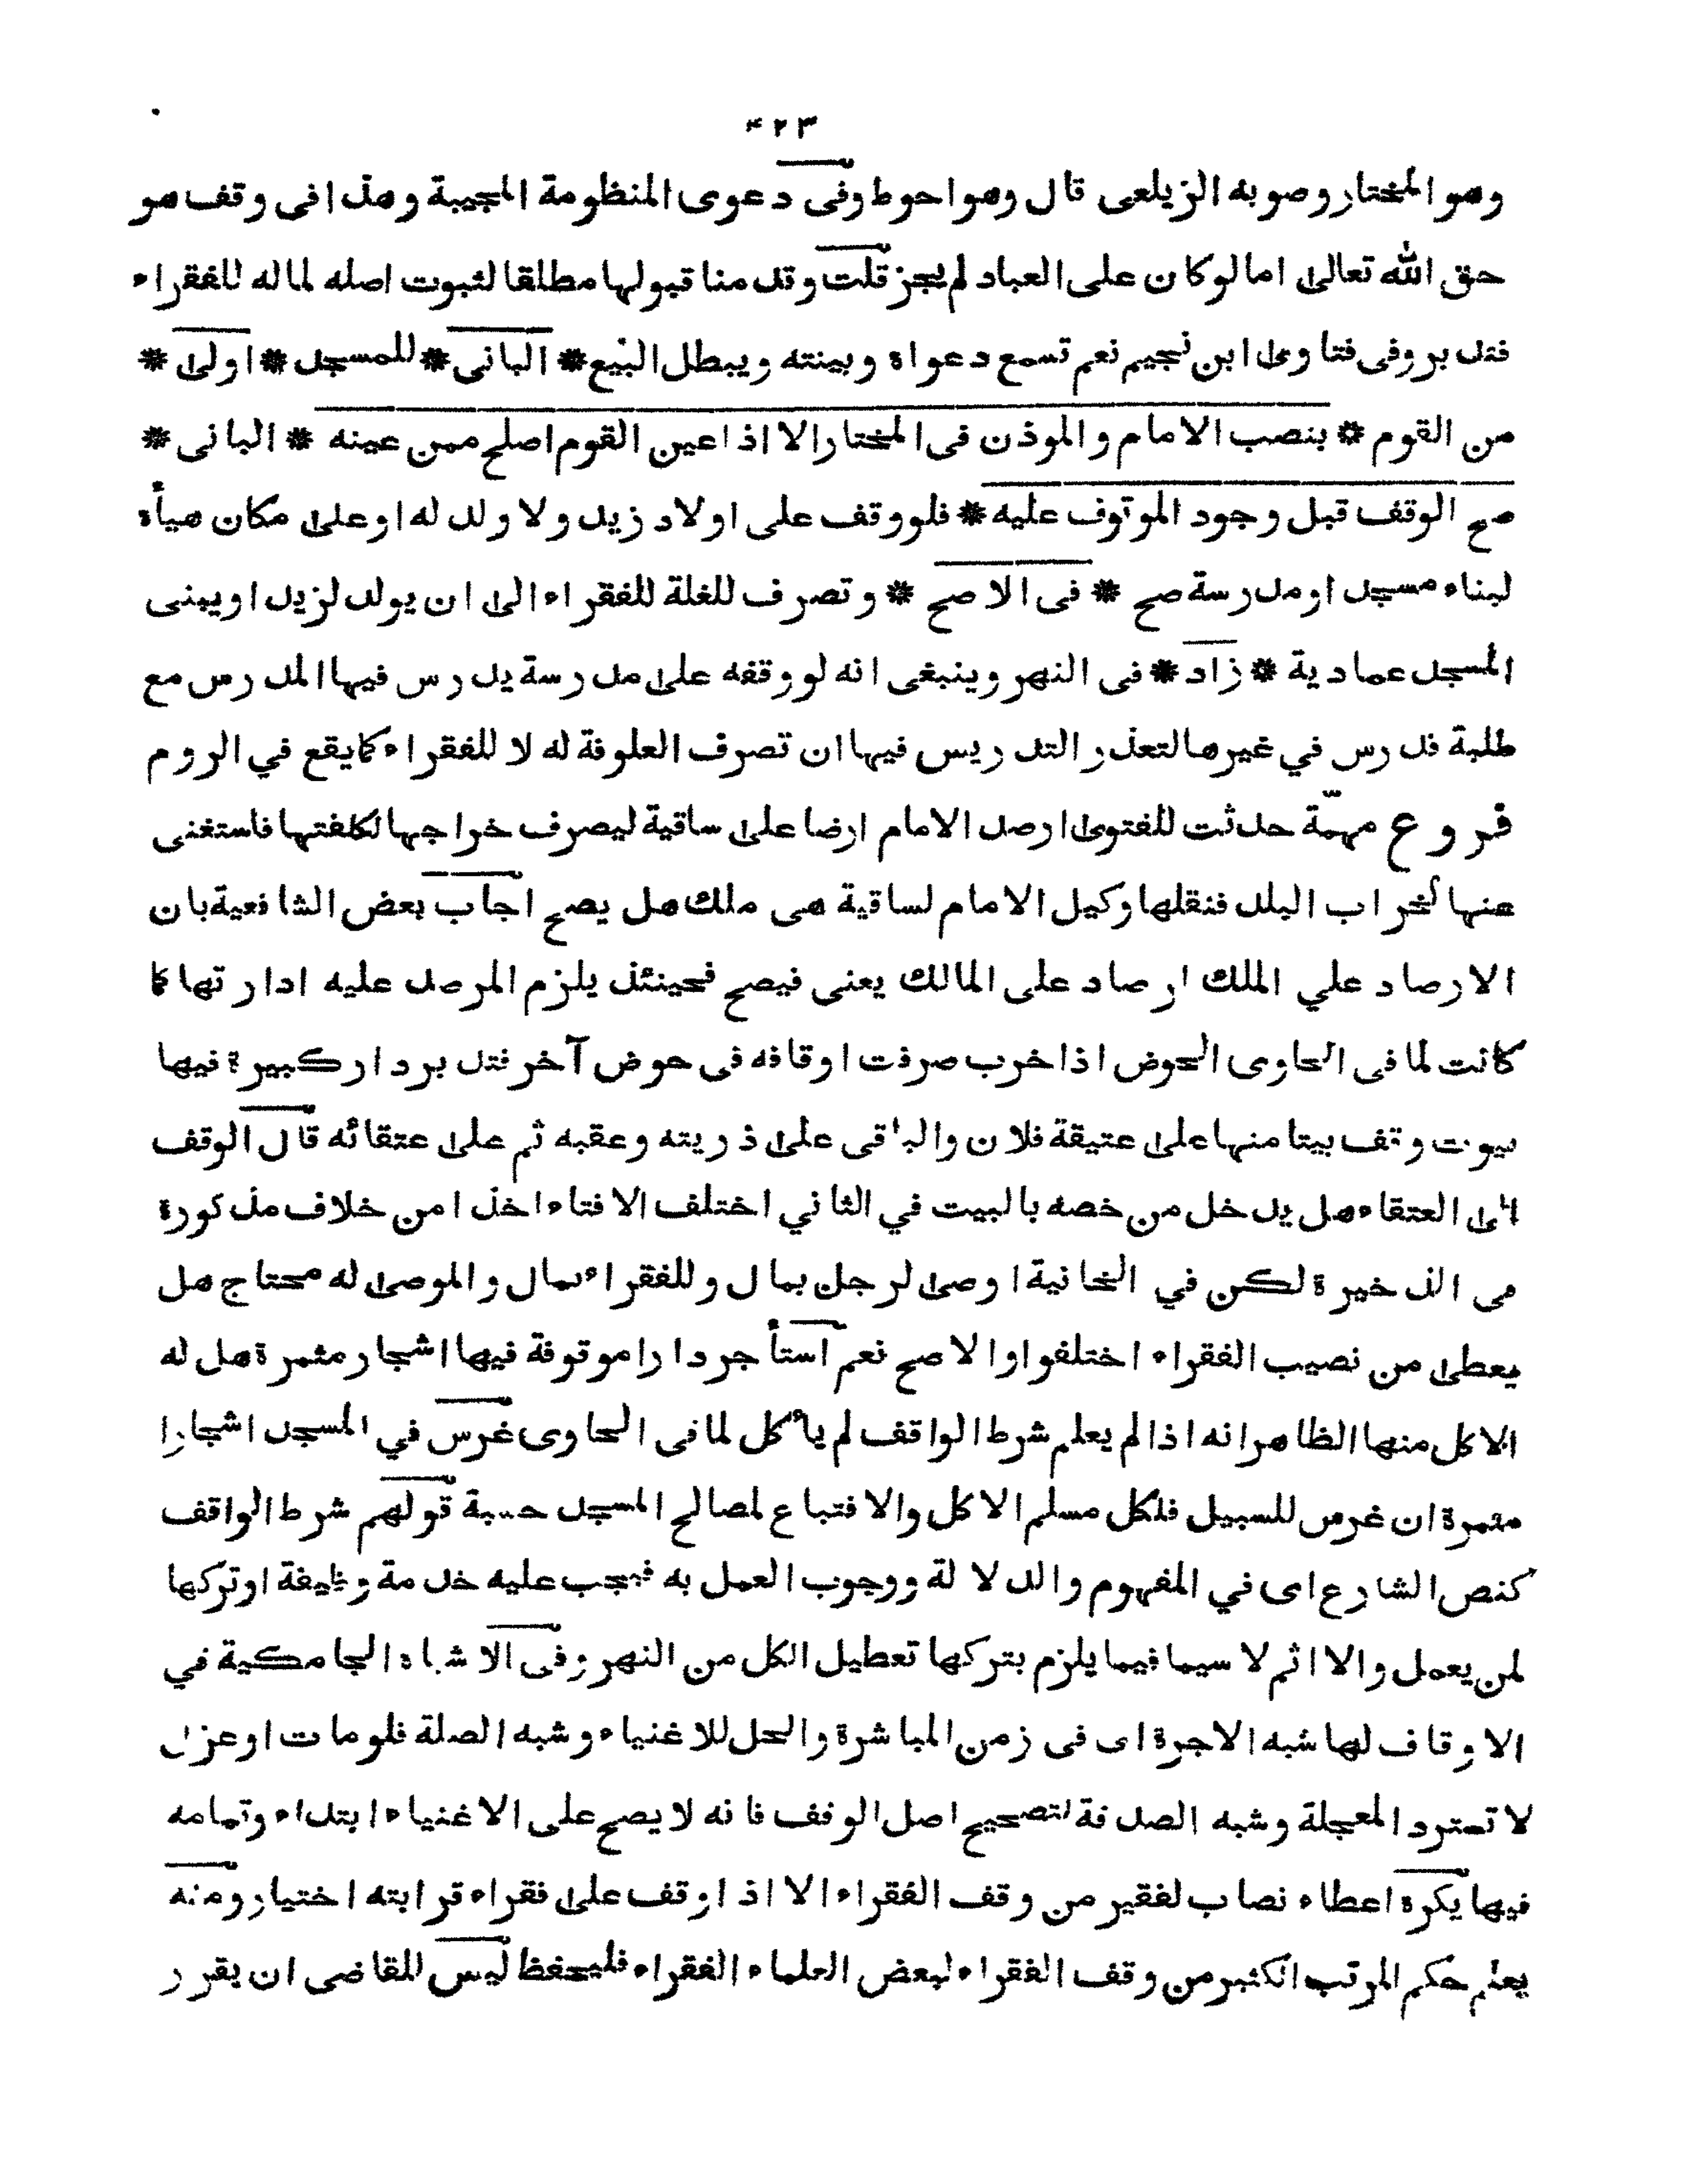 ۴۲۳
وهو المختار وصوبه الزيلعى قال وهو احوط وفى دعوى المنظومة المجيبة وهذا فى وقف هو
حق الله تعالى اما لو كان على العباد لم يجز قلت وقد منا قبولها مطلقا لثبوت اصله لماله للفقراء
فتد بر وفى فتاوى ابن نجيم نعم تسمع دعواه وبينته ويبطل البيع * البانى * للمسجد * اولى *
من القوم * بنصب الامام والموذن فى المختار الا اذا عين القوم اصلح ممن عينه * البانى *
صح الوقف قبل وجود الموقوف عليه * فلو وقف على اولاد زيد ولا ولد له او على مكان هيأه
لبناء مسجد او مدرسة صح * فى الاصح * وتصرف للغلة للفقراء الى ان يولد لزيد او يبنى
المسجد عمادية * زاد * فى النهر وينبغى انه لو وقفه على مدرسة يدرس فيها المدرس مع
طلبة فدرس في غيرها لتعذر التدريس فيها ان تصرف العلوفة له لا للفقراء كما يقع في الروم
فروع مهمّة حدثت للفتوى ارصد الامام ارضا على ساقية ليصرف خراجها لكلفتها فاستغنى
عنها لخراب البلد فنقلها وكيل الامام لساقية هى ملك هل يصح اجاب بعض الشافعية بان
الارصاد علي الملك ارصاد على المالك يعنى فيصح فحينئذ يلزم المرصد عليه ادارتها كما
كانت لما فى الحاوى الحوض اذا خرب صرفت اوقافه فى حوض آخر فتد بر دار كبيرة فيها
بيوت وقف بيتا منها على عتيقة فلان والباقى على ذريته وعقبه ثم على عتقائه قال الوقف
الى العتقاء هل يدخل من خصه بالبيت في الثاني اختلف الافتاء اخذا من خلاف مذكورة
فى الذخيرة لكن في الخانية اوصى لرجل بمال وللفقراء بمال والموصى له محتاج هل
يعطى من نصيب الفقراء اختلفوا والاصح نعم استأجر دارا موقوفة فيها اشجار مثمرة هل له
الاكل منها الظاهر انه اذا لم يعلم شرط الواقف لم يأكل لما فى الحاوى غرس في المسجد اشجارا
مثمرة ان غرس للسبيل فلكل مسلم الاكل والا فتباع لمصالح المسجد حسبة قولهم شرط الواقف
كنص الشارع اى في المفهوم والدلالة ووجوب العمل به فيجب عليه خدمة وظيفة او تركها
لمن يعمل والا اثم لا سيما فيما يلزم بتركها تعطيل الكل من النهر وفى الاشباه الجامكية في
الاوقاف لها شبه الاجرة اى فى زمن المباشرة والحل للاغنياء وشبه الصلة فلو مات او عزل
لا تسترد المعجلة وشبه الصدقة لتصحيح اصل الوقف فانه لا يصح على الاغنياء ابتداء وتمامه
فيها يكره اعطاء نصاب لفقير من وقف الفقراء الا اذا وقف على فقراء قرابته اختيار ومنه
يعلم حكم المرتب الكثير من وقف الفقراء لبعض العلماء الفقراء فليحفظ ليس للقاضى ان يقرر